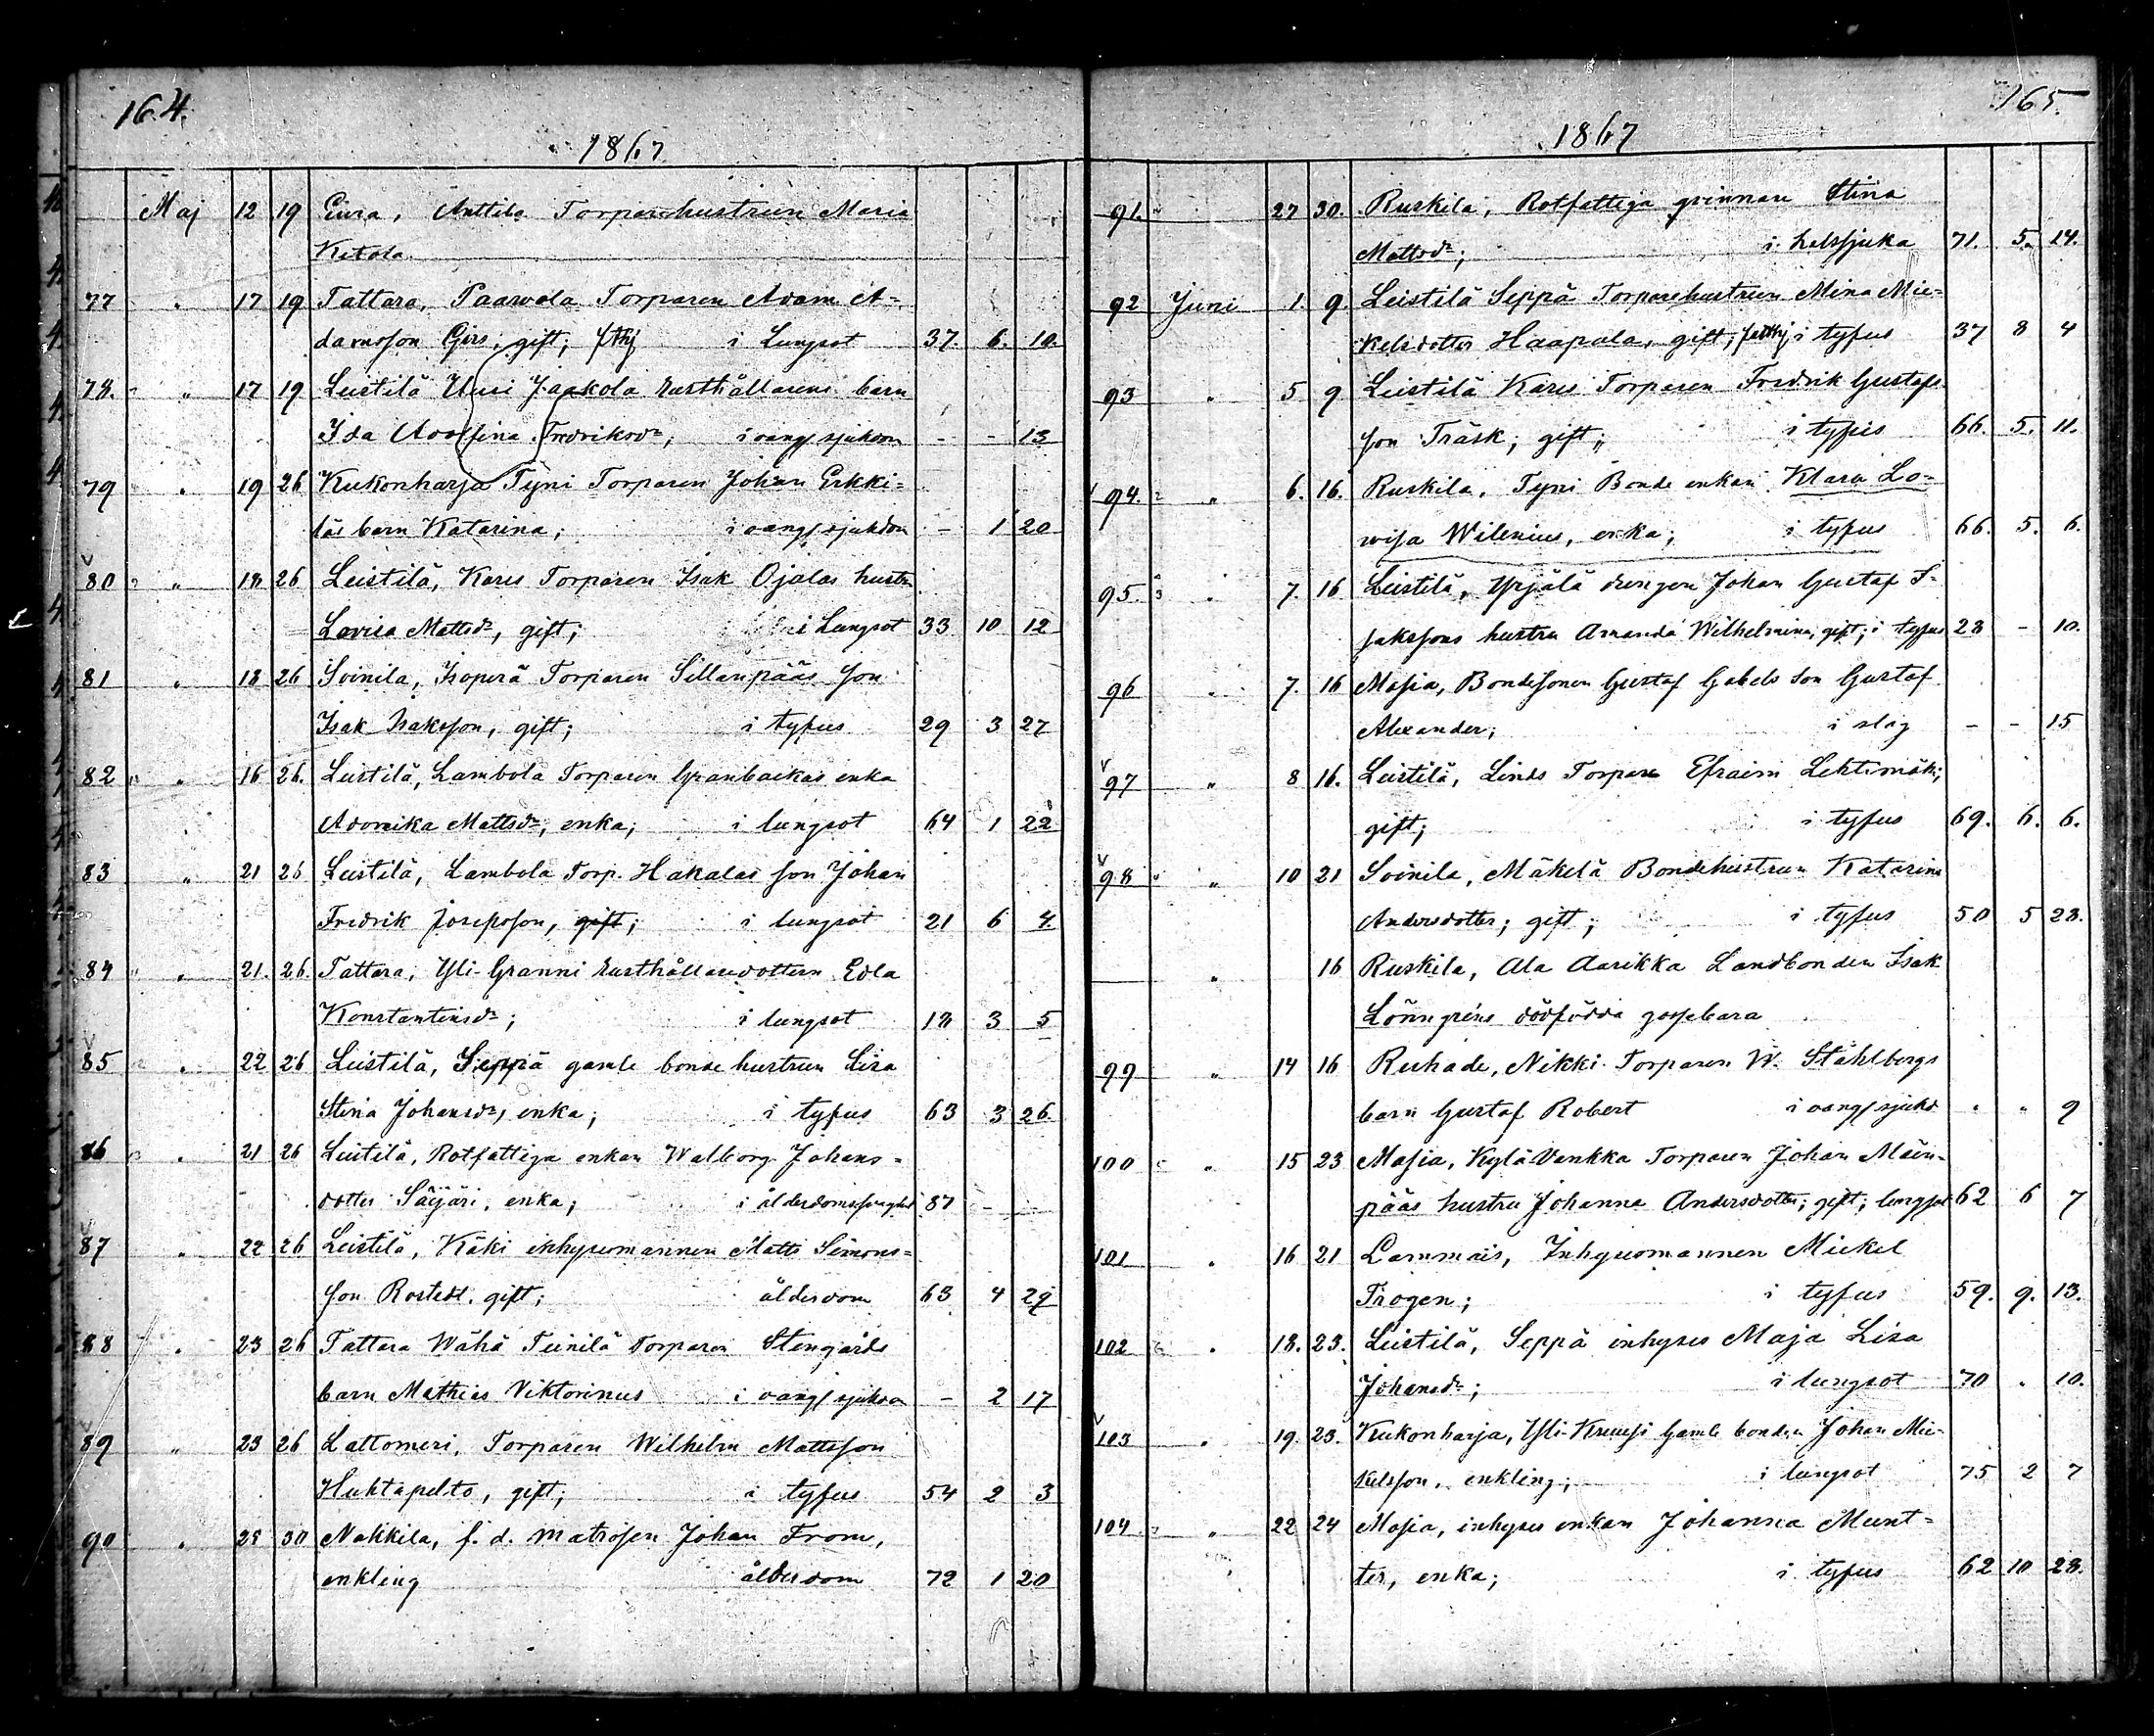 164.
1867
Maj 12 19 Eura, Anttila Torparehustrun Maria
Ketola
77 " 17 19 Tattara, Paavola Torparen Adam A=
damsson Girs; gift; i Lungsot 37. 6. 10.
78. " 17 19 Leistilä Uusi Jaakola rusthållarens barn
Ida Adolfina Fredriksdr; i oang/sjukdom - - 13
79 " 19 26 Kukonharja Tyni Torparen Johan Erkki=
läs barn Katarina; i oang/sjukdom - 1 20
80 " 18 26 Leistilä, Karus Torparen Isak Ojalas hustru
Lovisa Mattsdr, gift; i Lungsot 33 10 12
81 " 18 26 Soinila, Isoperä Torparen Sillanpääs son
Isak Isaksson, gift; i tyfus 29 3 27
82 " 16 26. Leistilä, Lambola Torparen Granbackas enka
Adovika Mattsdr, enka; i lungsot 64 1 22
83 " 21 26 Leistilä, Lambola Torp. Hakalas son Johan
Fredrik Josepsson, gift; i lungsot 21 6 4.
84 " 21. 26. Tattara, Yli-Granni rusthållaredottern Edla
Konstantinsdr; i lungsot 18 3 5
85 " 22 26 Leistilä, Seppä gamle bondehustrun Lisa
Stina Johansdr, enka; i tyfus 63 3 26.
86 " 21 26 Leistilä, Rotfattiga enkan Walborg Johans=
dotter Säyjäri, enka; i ålderdomssvaghet 87 - -
87 " 22 26 Leistilä, Käki inhysomannen Matts Simons=
son Rostedt. gift; ålderdom 63 4 29
88 " 23 26 Tattara Wähä Teinilä Torparen Stengårds
barn Mathias Viktorinus i oang/sjukdom - 2 17
89 " 23 26 Lattomeri, Torparen Wilhelm Mattsson
Huhtapelto, gift; i tyfus 54 2 3
90 " 25 30 Nakkila, f. d. matrosen Johan From,
enkling ålderdom 72 1 20
165.
1867
91. " 27 30. Ruskila, Rotfattiga qvinnan Stina
Mattsdr; i halssjuka 71. 5. 14.
92 Juni 1. 9. Leistilä Seppä Torparehustrun Mina Mic=
kelsdotter Haapala, gift; i tyfus 37 8 4
93 " 5 9 Leistilä Karus Torparen Fredrik Gustafs
son Träsk; gift; i tyfus 66. 5. 11.
94. " 6. 16. Ruskila, Tyni Bonde enkan Klara Lo=
wisa Wilenius, enka; i tyfus 66. 5. 6.
95 " 7. 16 Leistilä, Yrjälä drengen Johan Gustaf I=
saksons hustru Amanda Wilhelmina, gift; i tyfus 28 - 10.
96 " 7. 16 Masia, Bondesonen Gustaf Gabels son Gustaf
Alexander; i slag - - 15
97 " 8 16. Leistilä, Linds Torpare Efraim Lehtimäki;
gift; i tyfus 69. 6. 6.
98 " 10 21 Soinila, Mäkelä Bondehustrun Katarina
Andersdotter; gift; i tyfus 50 5 28.
" 16 Ruskila, Ala Aarikka Landbonden Isak
Lönngrens dödfödda gossebarn
99 " 14 16 Ruhade, Nikki Torparen W. Ståhlbergs
barn Gustaf Robert i oang/sjukd " " 9
100 " 15 23 Masia, Kylä-Vankka Torparen Johan Mäen=
pääs hustru Johanna Andersdotter; gift; lungsot 62 6 7
101 " 16 21 Lammais, Inhysomannen Mickel
Trogen; i tyfus 59. 9. 13.
102 " 18. 23. Leistilä, Seppä inhyses Maja Lisa
Johansdr; i lungsot 70 " 10.
103 " 19. 23. Kukonharja, Yli-Kruusi Gamle bonden Johan Mic=
kelsson, enkling; i lungsot 75 2 7
104 " 22 24 Masia, inhyses enkan Johanna Munt=
ter, enka; i tyfus 62 10 28.